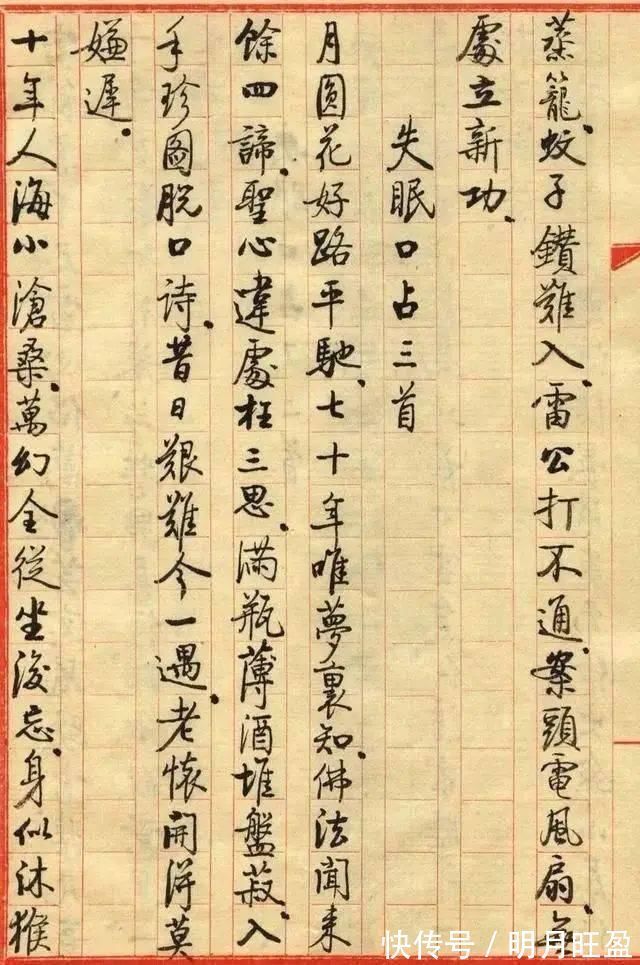 蒸籠蚊子鑽難入雷公打不通案頭電風扇無
處立新功
失眠口占三首
月圓花好路平馳七十年唯夢裏知佛法聞来
餘四諦聖心違處枉三思滿瓶薄酒堆盤菽入
手珍圖脫口诗昔日艱難今一遇老懷開得莫
嫌遲
十年人海小滄桑萬幻全從坐後忘身似沐猴
快传号／明月旺盈